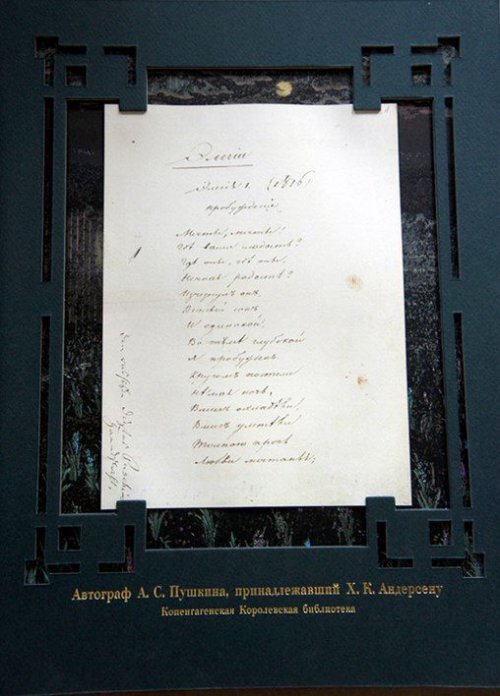 Элегіи
Элегія 1. (1816)
пробужденіе
Мечты, мечты!
Гдѣ ваша сладость?
Гдѣ ты, гдѣ ты,
Ночная радость?
Изчезнулъ онъ,
Веселый сонъ
И одинокой,
Во тьмѣ глубокой
Я пробужденъ
Кругомъ постели
Нѣмая ночь,
Вмигъ охладѣли,
Вмигъ улетѣли
Толпою прочь
Любви мечтанья;
Den russiske Digter Puschkins
Haandskrift.
Автограф А. С. Пушкина, принадлежавший Х. К. Андерсену
Копенгагенская Королевская библиотека